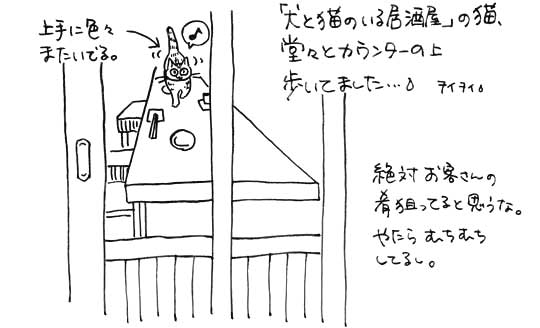 上手に色々
またいでる。
♪
「犬と猫のいる居酒屋」の猫、
堂々とカウンターの上
歩いてました…。
ヲイヲイ。
絶対お客さんの
肴狙ってると思うな。
やたらむちむち
してるし。